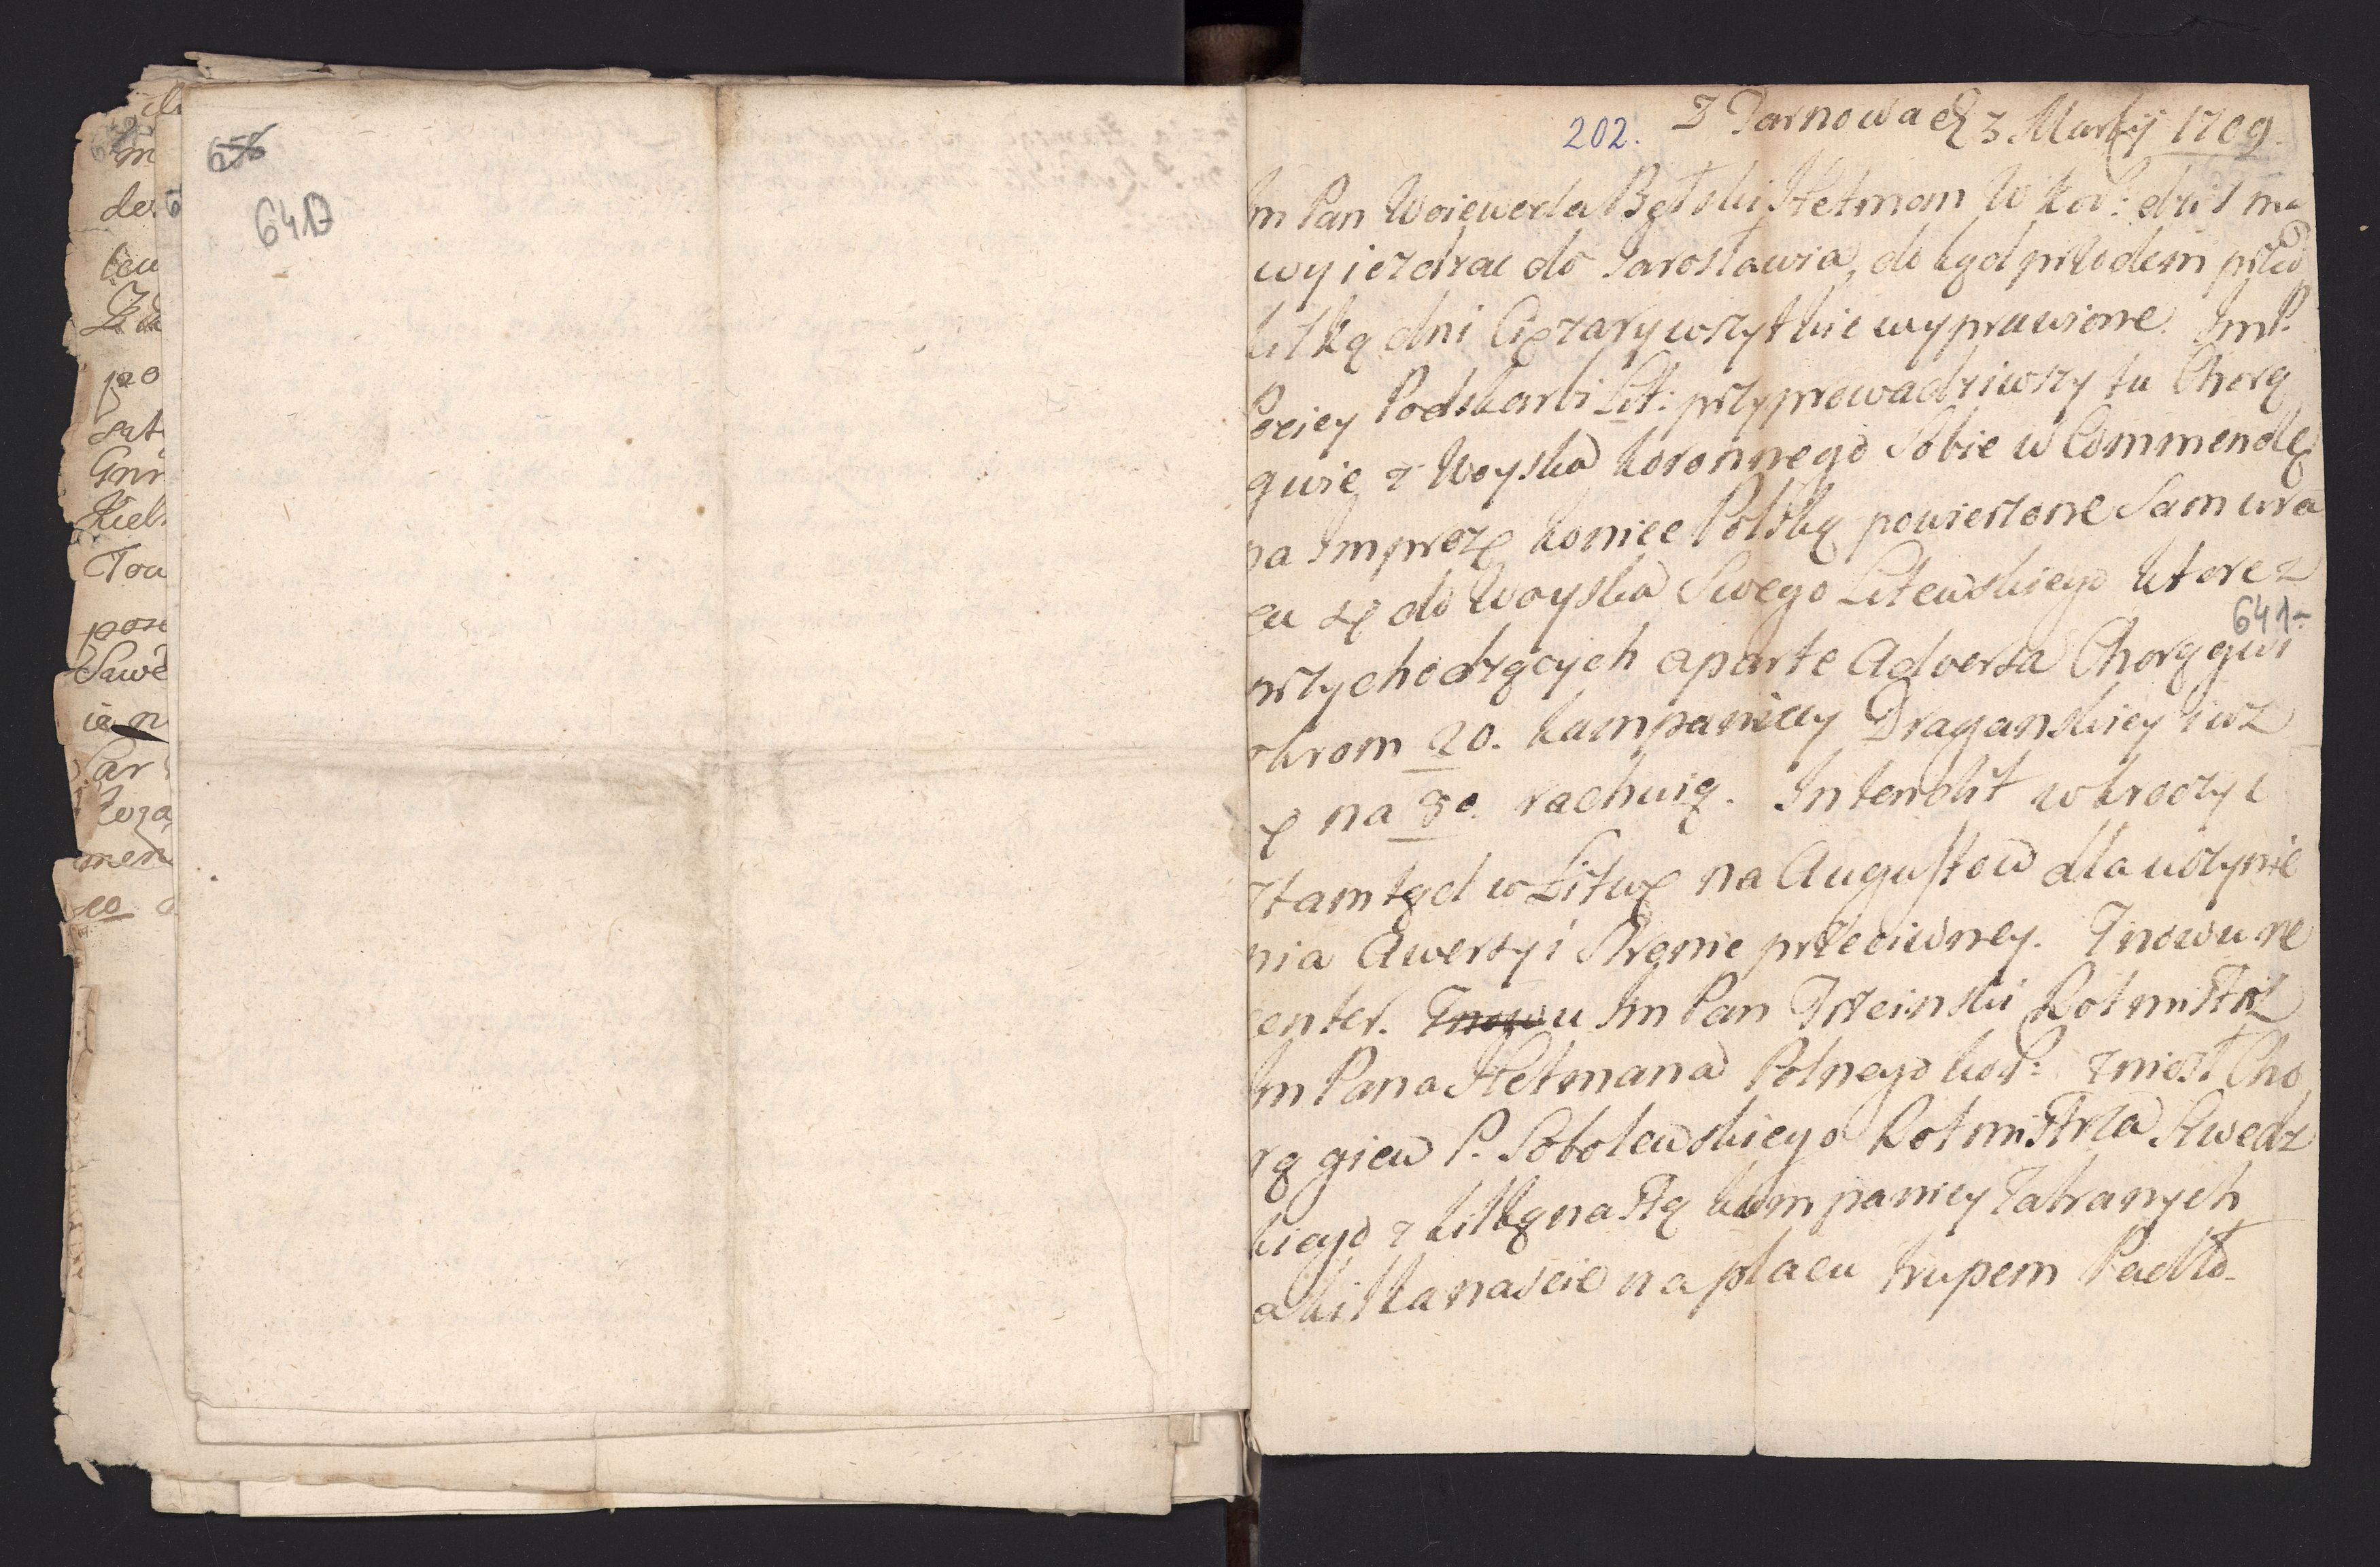 658
641v
202.
Z Tarnowa d 3 Martij 1709.
Im Pan Woiewoda Bełski Hetman W kor: dziś ma
wyiezdzac do Iarosławia, do kąd przodem przed
kilką dni Ciężary wszytkie wyprawione. Im P.
Pociey Podskarbi Lit: przyprowadziwszy tu Chorą
gwie z Woyska koronnego Sobie w Commendę
na Imprezę koniec Polską powierzone Sam wra
ca się do Woyska Swego Litewskiego ktore z
641-
przychodzących a parte Adversa Chorągwi
okrom 20. kampaniey Dragańskiey iusz
ę na 80. rachuią. Intendit wkroczyc
ztamtąd w Litwę na Augustow dla uczynie
nia Awersyi Stronie przeciwney. Znowu re
center. Znowu Im Pan Trzciński Rotmistrz
Im Pana Hetmana Polnego kor: zniosł Cho
rągiew P. Sobolewskiego Rotmistrza Szwedz
kiego z kilkąnastą kompaniey zabranych
a kilkanaście na placu trupem Padło.
de
leu
po
sat
Gnr
Kiel
Tou
pon
Sawe
ia n
ar
men